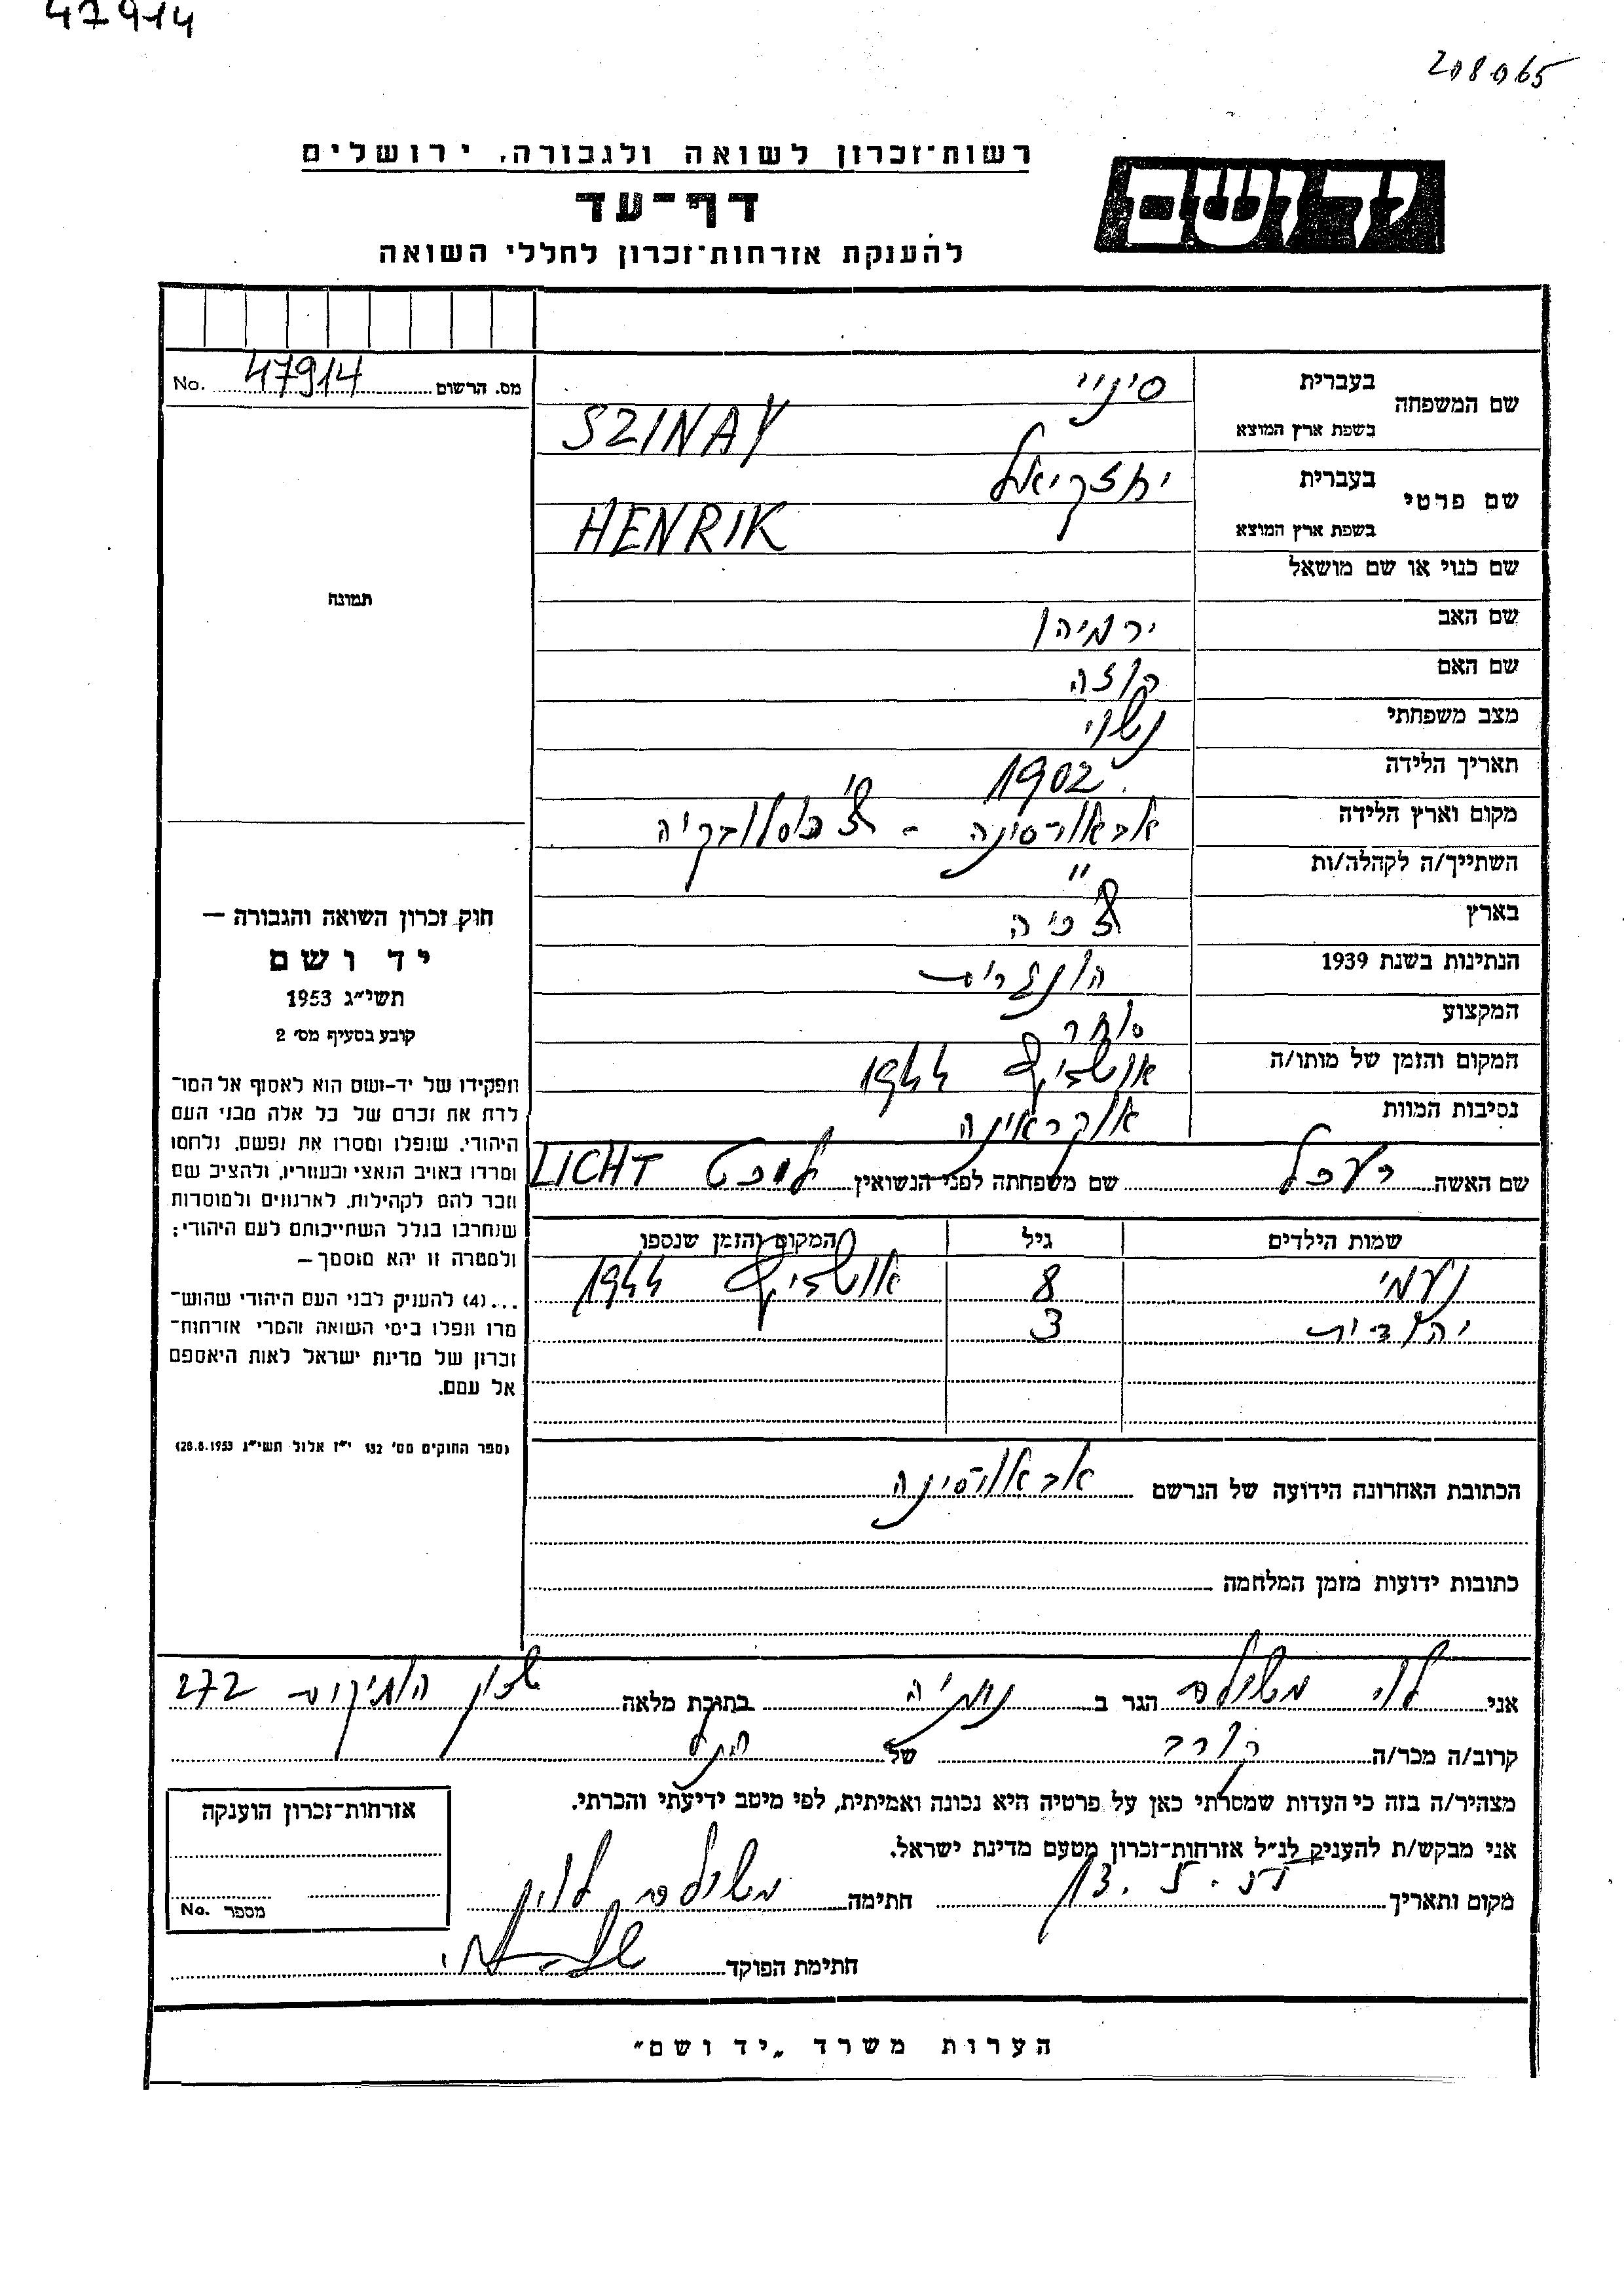 47914
208065
רשות־זכרון לשואה ולגבורה, ירושלים
יד ושם
דף־עד
להענקת אזרחות־זכרון לחללי השואה
No. 47914 מס. הרשום
שם המשפחה בעברית סיניי
בשפת ארץ המוצא SZINAY
שם פרטי בעברית יחזקיאל
בשפת ארץ המוצא HENRIK
שם כנוי או שם מושאל
תמונה
שם האב ירמיהו
שם האם רוזה
מצב משפחתי נשוי
תאריך הלידה 1902
מקום וארץ הלידה - צ'כוסלובקיה
השתייך/ה לקהלה/ות "
בארץ
הנתינות בשנת 1939 הונגרית
המקצוע סוחר
המקום והזמן של מותו/ה אושויץ 1944
נסיבות המוות אוקראינה
חוק זכרון השואה והגבורה —
יד ושם
תשי״ג 1953
קובע בסעיף מס׳ 2
תפקידו של יד-ושם הוא לאסוף אל המו־
לדת את זכרם של כל אלה מבני העם
היהודי, שנפלו ומסרו את נפשם, נלחמו
ומרדו באויב הנאצי ובעוזריו, ולהציב שם
וזכר להם לקהילות, לארגונים ולמוסדות
שנחרבו בגלל השתייכותם לעם היהודי;
ולמטרה זו יהא מוסמך —
...(4) להעניק לבני העם היהודי שהוש־
מדו ונפלו בימי השואה והמרי אזרחות־
זכרון של מדינת ישראל לאות היאספם
אל עמם.
(ספר החוקים מס׳ 132 י״ז אלול תשי״ג 28.8.1953)
שם האשה שם משפחתה לפני הנשואין ליכט LICHT
שמות הילדים גיל המקום והזמן שנספו
נעמי 8 אושויץ 1944
יהודית 3
הכתובת האחרונה הידועה של הנרשם
כתובות ידועות מזמן המלחמה
אני לוי משולם הגר ב נתניה בתובת מלאה שכון הותיקים 272
קרוב/ה מכר/ה קורב של הנ״ל
מצהיר/ה בזה כי העדות שמסרתי כאן על פרטיה היא נכונה ואמיתית, לפי מיטב ידיעתי והכרתי.
אני מבקש/ת להעניק לנ״ל אזרחות־זכרון מטעם מדינת ישראל.
מקום ותאריך חתימה משולם לוי
חתימת הפוקד
אזרחות־זכרון הוענקה
No. מספר
הערות משרד „יד ושם״